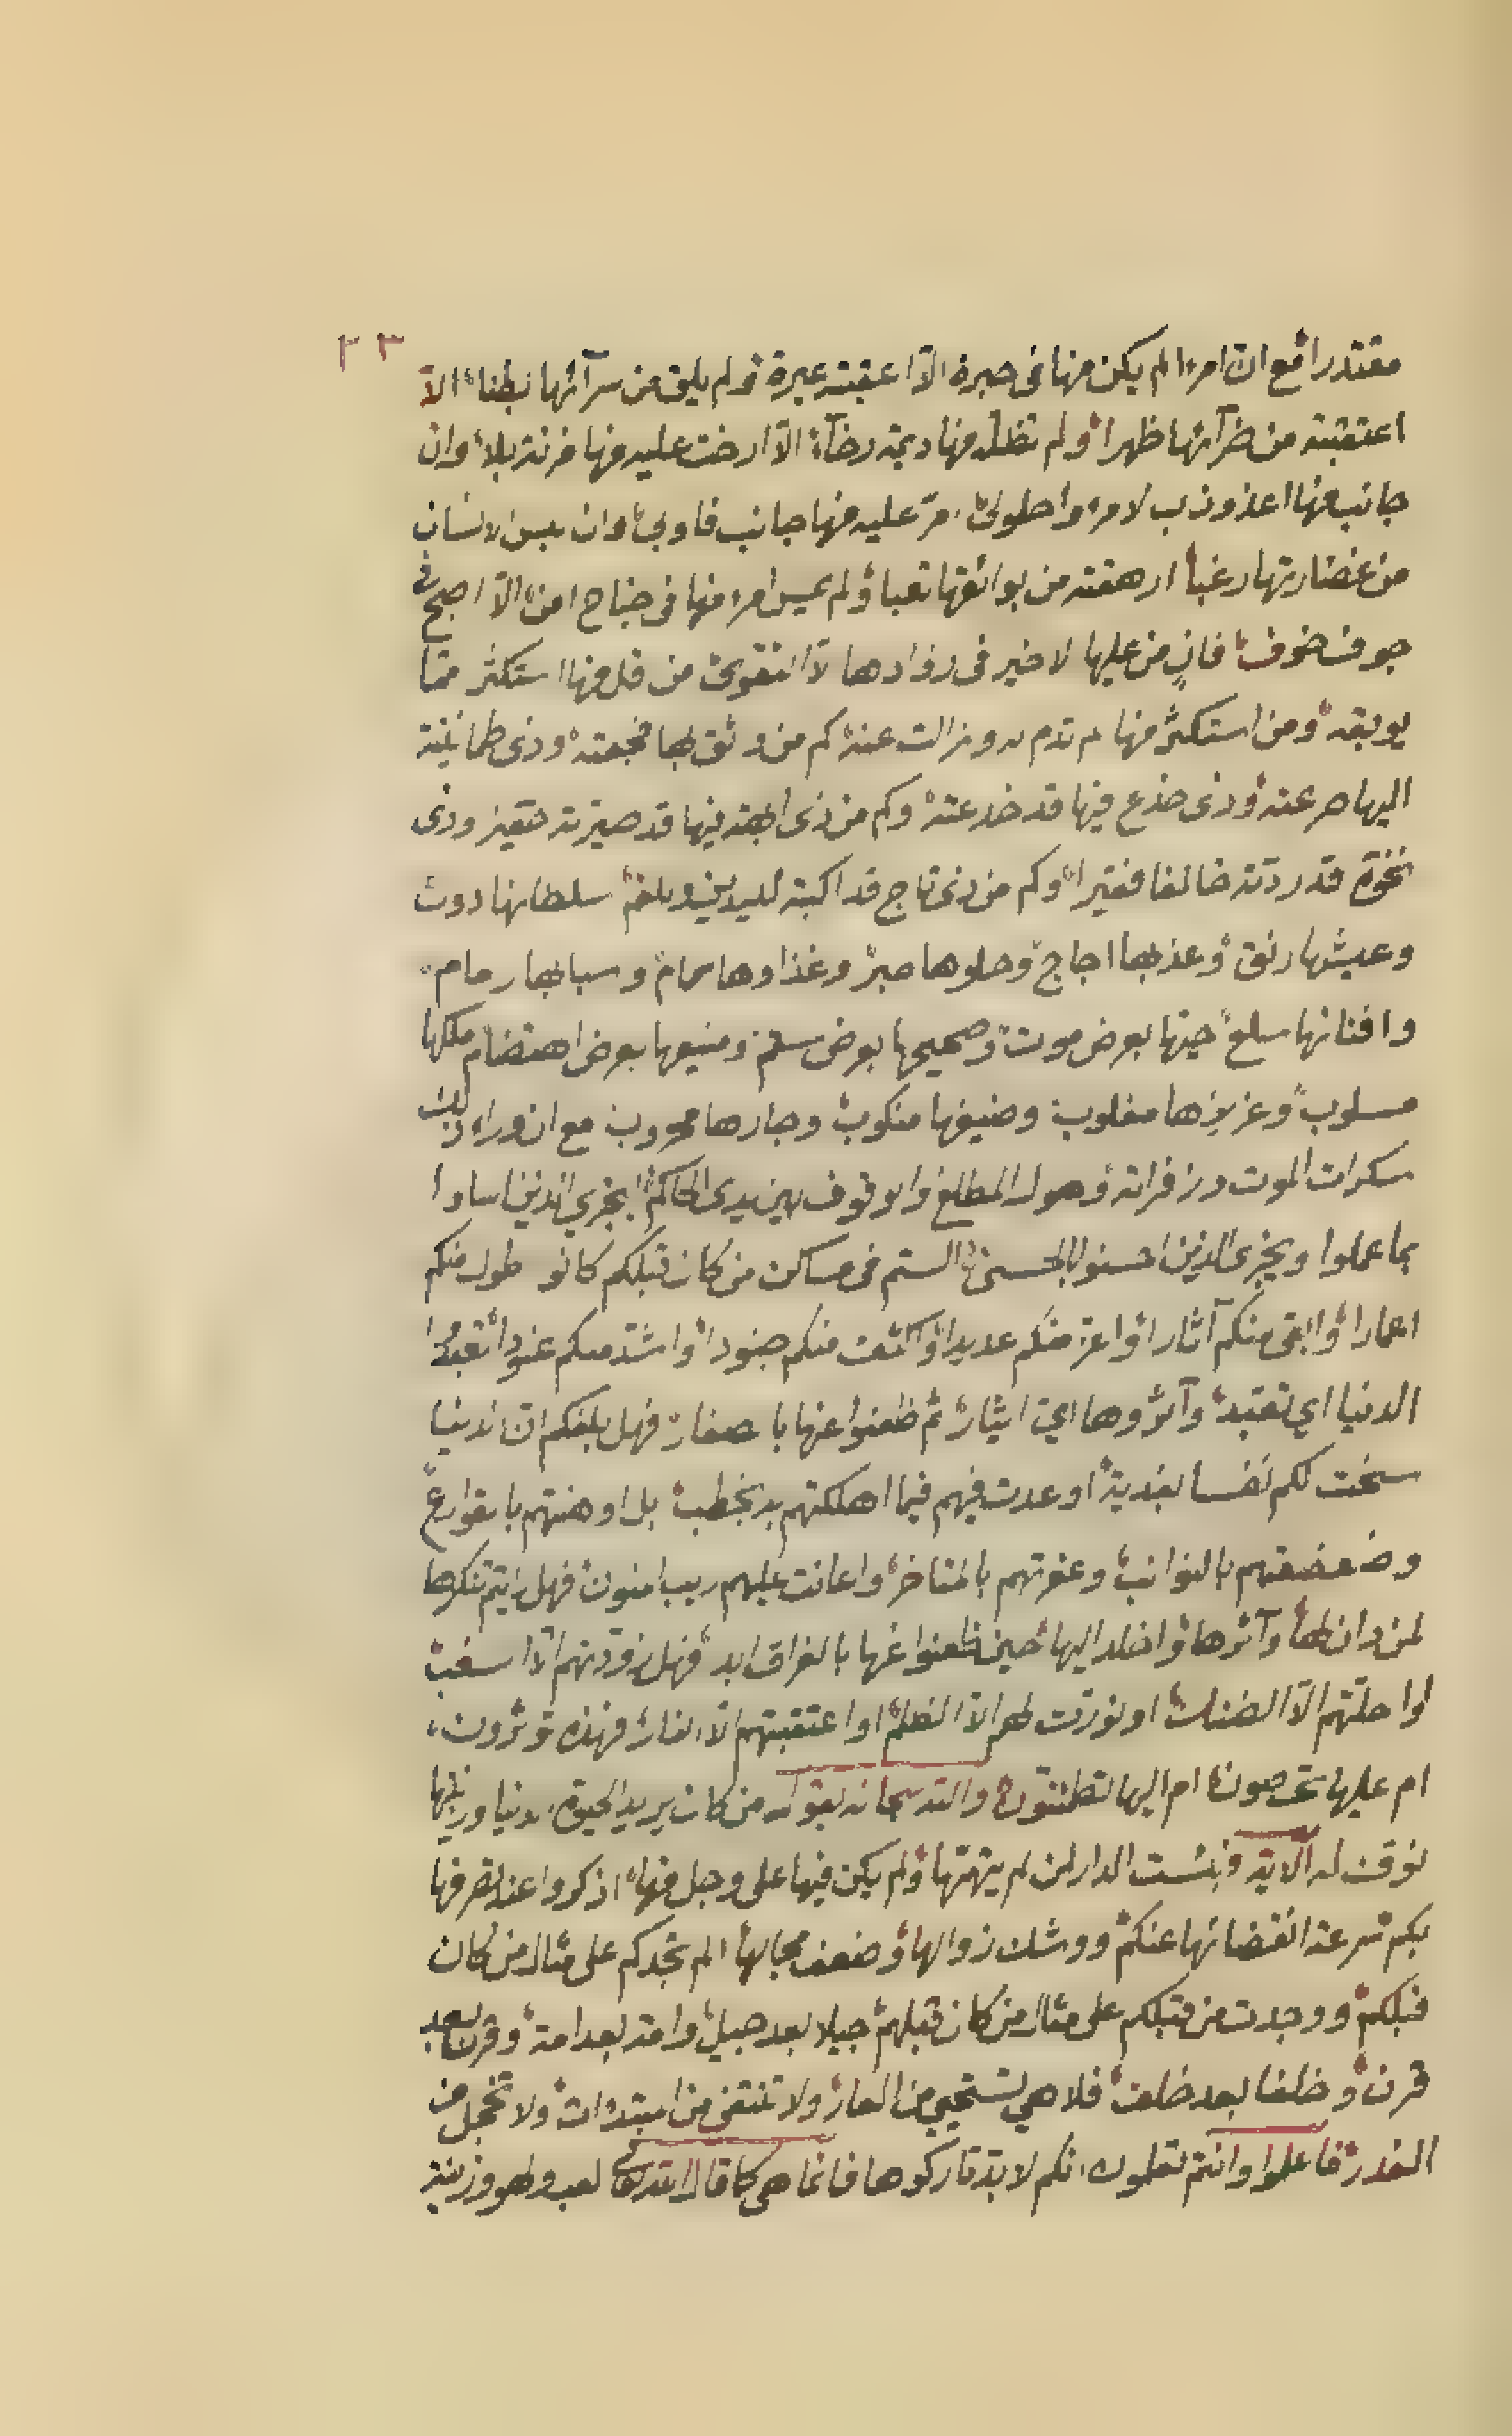 ٢٣
مقتدرا مع ان امرءا لم يكن منها فى حبرة الا اعقبته عبرة ولم يلق من سرآئها بطنا الا
اعتقبته من ضرآئها ظهرا ولم تظله منها ديمة رخآء الا ارخت عليه منها مزنة بلاء وان
جانب منها اعذوذب لامرء واحلولى امر عليه منها جانب فاوبى وان لبس الانسان
من غضارتها رغبا ارهقته من بوائقها تعبا ولم يمس امرء منها فى جناح امن الا اصبح فى
جوف خوف فان من عليها لا خير فى زوادها الا التقوى من قل منها استكثر مما
يوبقه ومن استكثر منها لم تدم له وزالت عنه كم من وثق بها فجعته وذى طمانينة
اليها صرعته وذى خدع فيها قد خدعته وكم من ذى ابهة فيها قد صيرته حقيرا وذى
نخوة قد ردته خائفا فقيرا وكم من ذى تاج قد اكبته لليدين وللفم سلطانها دول
وعيشها رنق وعذبها اجاج وحلوها صبر وغذاوها سمام وسبابها رمام
وافنانها سلع حيها بعرض موت وصحيحها بعرض سقم ومنيعها بعرض اهتضام ملكها
مسلوب وعزيزها مغلوب وضيفها منكوب وجارها محروب مع ان وراء ذلك
سكرات الموت وزفراته وهول المطلع والوقوف بين يدى الحاكم ليجزي الذين اساوا
بما عملوا ويجزى الذين احسنوا بالحسنى الستم فى مساكن من كان قبلكم كانو طول منكم
اعمارا وابقى منكم آثارا واعز منكم عديدا واكثف منكم جنودا واشد منكم عنودا تعبدوا
الدنيا اي تعبد وآثروها اي ايثار ثم ظعنوا عنها با صغار فهل بلغكم ان الدنيا
سخت لكم نفسا بفدية او عدت فيهم فيما اهلكتهم به بخطب بل اوهنتهم بالقوارع
وضعضعتهم بالنوائب وعفرتهم بالمناخر واعانت عليهم ريب المنون فهل رايتم تنكرها
لمن دان لها وآثرها واخلد اليها حين ظعنوا عنها بالفراق ابد فهل زودتهم الا السغب
او احلتهم الا الضنك او نورت لهم الا الظلم او اعتقبتهم الا النار فهذه توثرون
ام عليها تحرصون ام اليها تطمئنون والله سبحانه يقول من كان يريد الحيوة الدنيا وزينتها
نوف له الآية وبئست الدار لمن لم يتهمها ولم يكن فيها على وجل منها اذكروا عند تصرفها
بكم سرعة انقضائها عنكم ووشك زوالها وضعف مجالها الم تجدكم على مثال من كان
قبلكم ووجدت من قبلكم على مثال من كان قبلهم جيلا بعد جيل وامة بعد امة وقرن بعد
قرن وخلفا بعد خلف فلا هي تستحيي من العار ولا تنتقى من ولا تخجل من
الغدر فاعلموا وانتم تعلمون انكم لا بد تاركوها فانما هى كما قال الله تعالى لعب ولهو وزينة